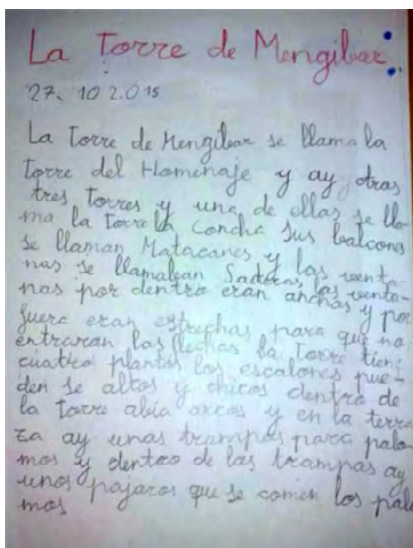 La Torre de Mengibar
27. 10 2.015
La Torre de Mengibar se llama la
Torre del Homenaje y ay otras
tres Torres y una de ellas se lla-
ma la Torre la Concha Sus balcones
se llaman Matacanes y las venta-
nas se llamaban Saeteras las venta-
nas por dentro eran anchas y por
fuera eran estrechas para que no
entraran las flechas la Torre tiene
cuatro plantas los escalones pue-
den se altos y chicos dentro de
la Torre abia arcos y en la terra
za ay unas trampas para palo-
mos y dentro de las trampas ay
unos pajaros que se comen los palo
mos